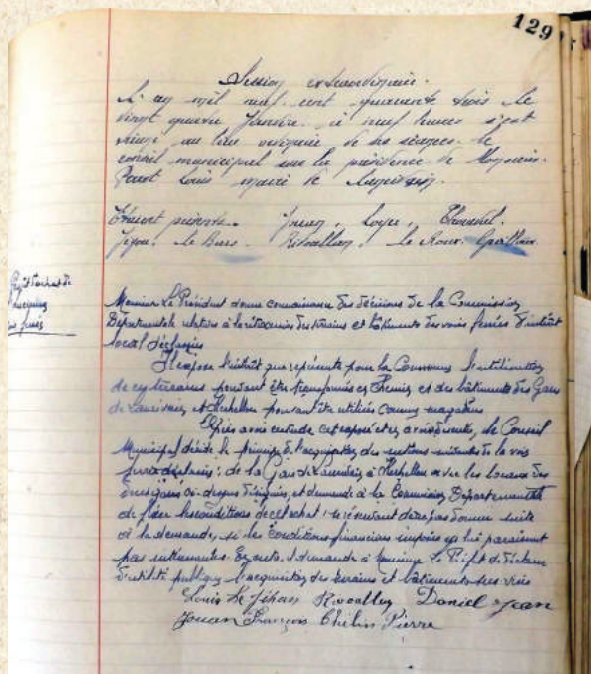 129
Session extraordinaire.
L'an mil neuf cent quarante trois le
vingt quatre Janvier à neuf heures s'est
réuni au lieu ordinaire de ses séances le
conseil municipal sous la présidence de Monsieur
Louis maire de
Etaient présents Jouan, Thouément
Le Bars Rivoallan, le Roux
Projet d'achat de
Monsieur Le Président donne connaissance des décisions de la Commission
Départementale relatives à la rétrocession des terrains et bâtiments des voies ferrées d'intérêt
local déclassées
Il expose l'intérêt que représente pour la Commune l'utilisation
de ces terrains pouvant être transformés en Chemins et des bâtiments des Gares
de et pouvant être utilisés comme magasins
Après avoir entendu cet exposé et en avoir délibéré, le Conseil
Municipal décide le principe de l'acquisition des sections suivantes de la voie
ferrée déclassée : de la Gare de à avec les locaux des
deux gares ci-dessus désignées, et demande à la Commission Départementale
de fixer les conditions de cet achat, se réservant de ne pas donner suite
à la demande, si les Conditions financières imposées lui paraissent
pas intéressantes. demande à Monsieur Le Préfet de déclarer
d'utilité publique l'acquisition des terrains et bâtiments des voies
Louis Le Jéhan Rivoallan Daniel Jean
Jouan François Pierre